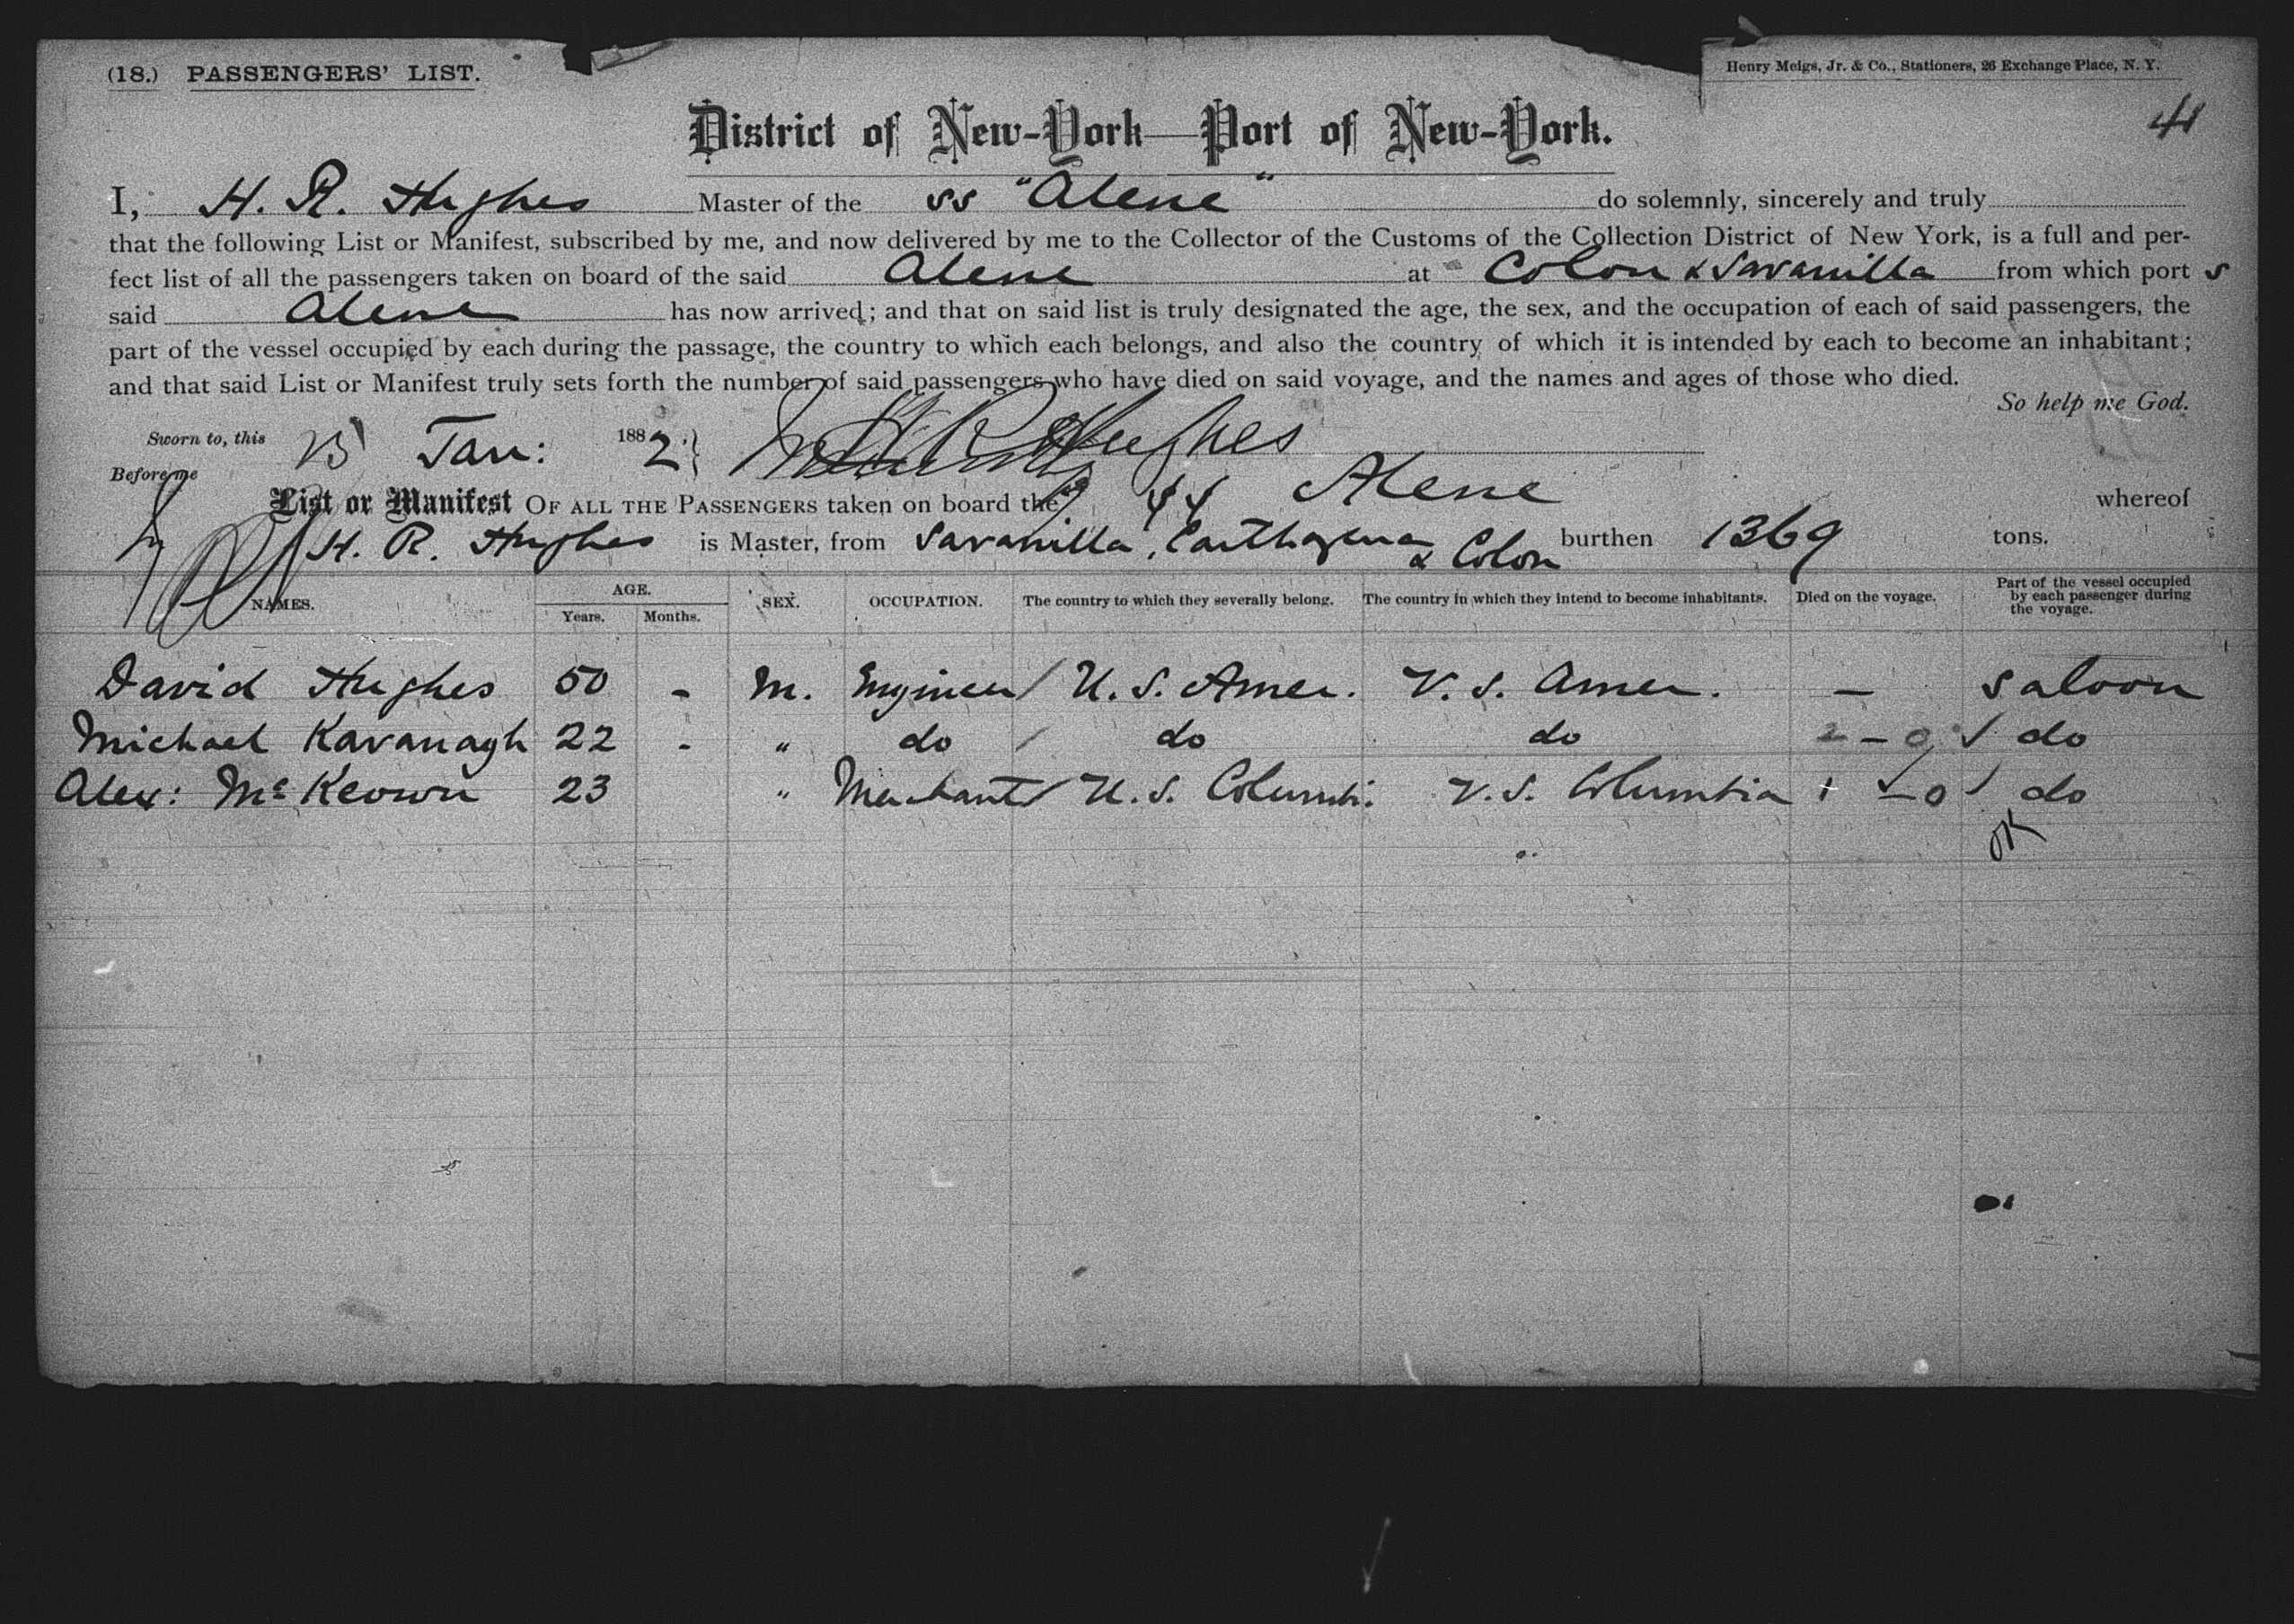 (18.) PASSENGERS' LIST.
Henry Meigs, Jr. & Co., Stationers, 26 Exchange Place, N. Y.
41
District of New-York—Port of New-York.
I, H. R. Hughes Master of the ss "Alene" do solemnly, sincerely and truly
that the following List or Manifest, subscribed by me, and now delivered by me to the Collector of the Customs of the Collection District of New York, is a full and per-
fect list of all the passengers taken on board of the said Alene at Colon & Savanilla from which port s
said Alene has now arrived; and that on said list is truly designated the age, the sex, and the occupation of each of said passengers, the
part of the vessel occupied by each during the passage, the country to which each belongs, and also the country of which it is intended by each to become an inhabitant;
and that said List or Manifest truly sets forth the number of said passengers who have died on said voyage, and the names and ages of those who died.
So help me God.
Sworn to, this Jan: 1882 H R Hughes
Before me
List or Manifest OF ALL THE PASSENGERS taken on board the Alene whereof
H. R. Hughes is Master, from Savanilla, Carthagena & Colon burthen 1369 tons.
NAMES. AGE. Years. Months. SEX. OCCUPATION. The country to which they severally belong. The country in which they intend to become inhabitants. Died on the voyage. Part of the vessel occupied by each passenger during the voyage.
David Hughes 50 - M. Engineer / U. S. Amer. U. S. Amer. — Saloon
Michael Kavanagh 22 - " do / do do 2 - 0 / do
Alex: McKeown 23 " Merchant / U. S. Columbi. U. S. Columbia 1 - 0 / do
OK